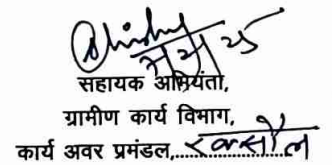 सहायक अभियंता,
ग्रामीण कार्य विभाग,
कार्य अवर प्रमंडल,..........रक्सौल